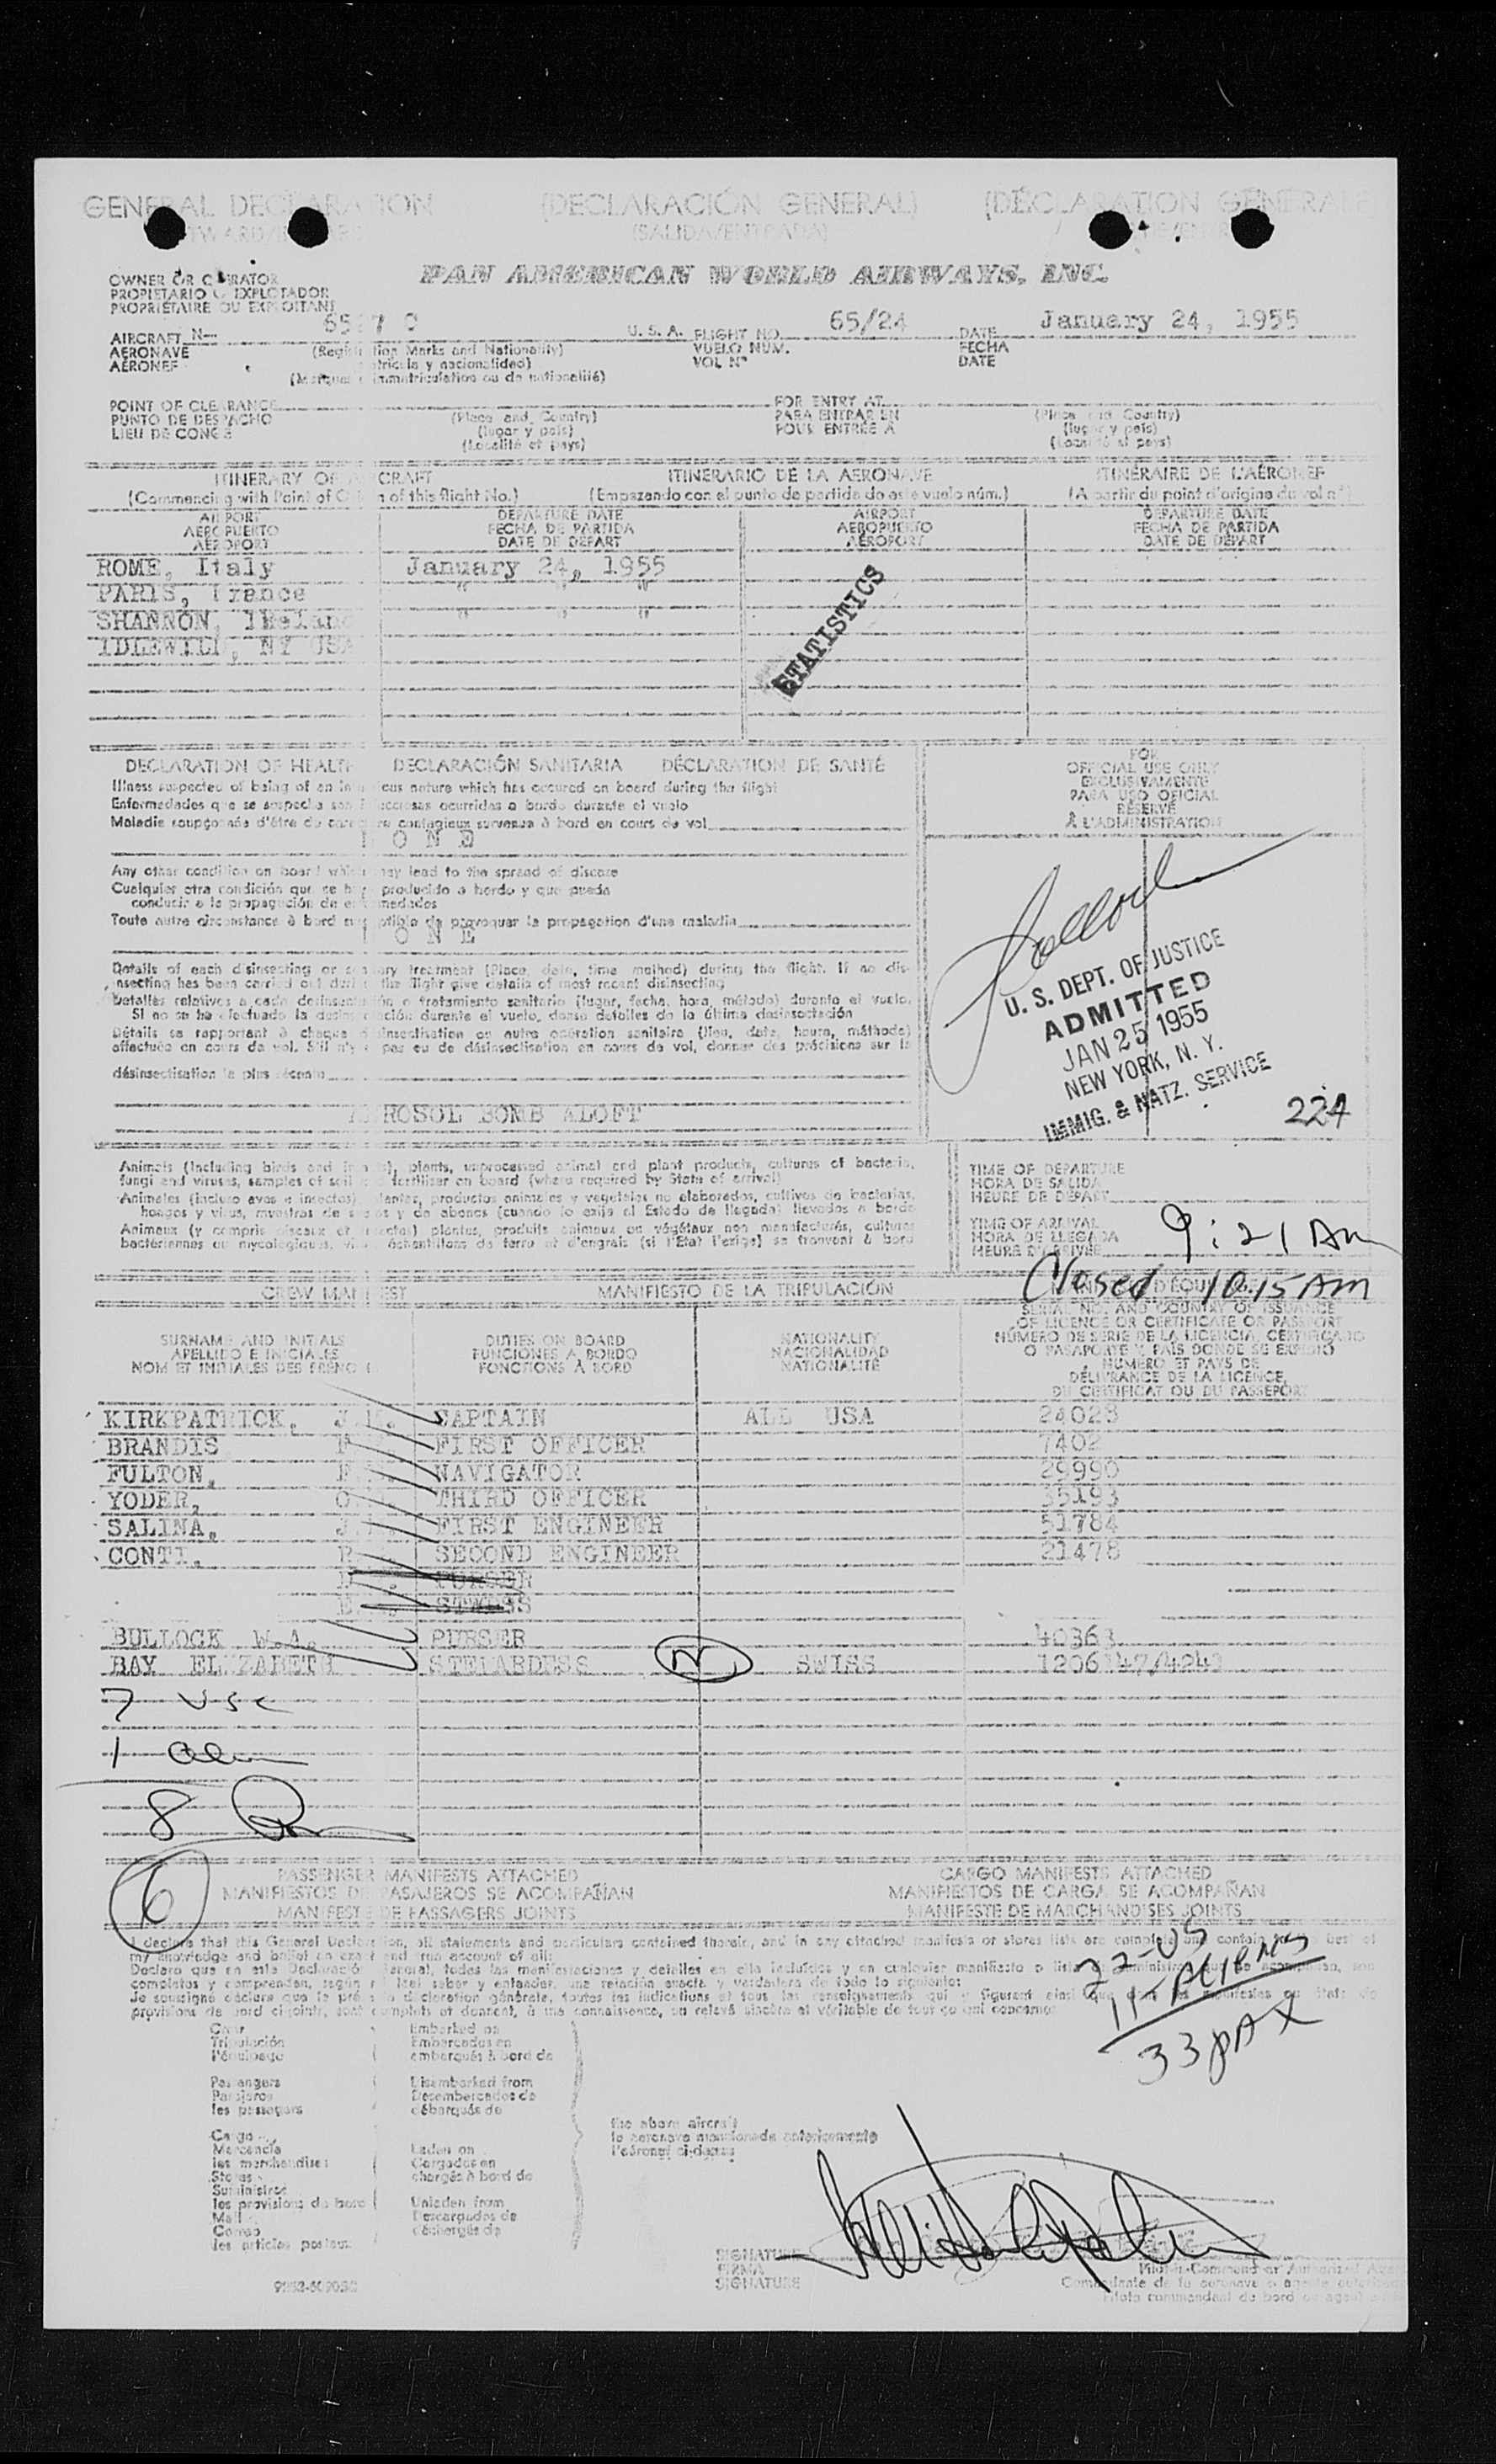 GENERAL DECLARATION (DECLARACIÓN GENERAL) (DÉCLARATION GÉNÉRALE
(SALIDA/ENTRADA)
PAN AMERICAN WORLD AIRWAYS, INC.
OWNER OR OPERATOR
PROPIETARIO O EXPLOTADOR
PROPRIÉTAIRE OU EXPLOITANT
AIRCRAFT N— U. S. A. FLIGHT NO. 65/24 DATE January 24, 1955
AERONAVE (Registration Marks and Nationality) VUELO NUM. FECHA
AÉRONEF (Matrícula y nacionalidad) VOL Nº DATE
(Marques d'immatriculation ou de nationalité)
POINT OF CLEARANCE FOR ENTRY AT
PUNTO DE DESPACHO (Place and Country) PARA ENTRAR EN (Place and Country)
LIEU DE CONGÉ (lugar y país) POUR ENTRÉE À (lugar y país)
(Localité et pays) (Localité et pays)
ITINERARY OF AIRCRAFT ITINERARIO DE LA AERONAVE ITINÉRAIRE DE L'AÉRONEF
(Commencing with Point of Origin of this flight No.) (Empezando con el punto de partida de este vuelo núm.) (A partir du point d'origine du vol nº)
AIRPORT DEPARTURE DATE AIRPORT DEPARTURE DATE
AEROPUERTO FECHA DE PARTIDA AEROPUERTO FECHA DE PARTIDA
AÉROPORT DATE DE DÉPART AÉROPORT DATE DE DÉPART
ROME, Italy January 24, 1955
PARIS, France " " "
SHANNON, Ireland " " "
IDLEWILD, NY USA
STATISTICS
DECLARATION OF HEALTH DECLARACIÓN SANITARIA DÉCLARATION DE SANTÉ
Illness suspected of being of an infectious nature which has occured on board during the flight
Enfermedades que se sospecha son infecciosas ocurridas a bordo durante el vuelo
Maladie soupçonnée d'être de caractère contagieux survenue à bord en cours de vol
NONE
Any other condition on board which may lead to the spread of disease
Cualquier otra condición que se haya producido a bordo y que pueda
conducir a la propagación de enfermedades
Toute autre circonstance à bord susceptible de provoquer la propagation d'une maladie
NONE
Details of each disinsecting or sanitary treatment (Place, date, time method) during the flight. If no dis-
insecting has been carried out during the flight give details of most recent disinsecting
Detalles relativos a cada desinsectación o tratamiento sanitario (lugar, fecha, hora, método) durante el vuelo.
Si no se ha efectuado la desinsectación durante el vuelo, dense detalles de la última desinsectación
Détails se rapportant à chaque désinsectisation ou autre opération sanitaire (lieu, date, heure, méthode)
effectuée en cours de vol. S'il n'y a pas eu de désinsectisation en cours de vol, donner des précisions sur la
désinsectisation la plus récente
AEROSOL BOMB ALOFT
FOR
OFFICIAL USE ONLY
EXCLUSIVAMENTE
PARA USO OFICIAL
RÉSERVÉ
À L'ADMINISTRATION
U. S. DEPT. OF JUSTICE
ADMITTED
JAN 25 1955
NEW YORK, N. Y.
IMMIG. & NATZ. SERVICE
224
Animals (Including birds and insects), plants, unprocessed animal and plant products, cultures of bacteria,
fungi and viruses, samples of soil or fertiliser on board (where required by State of arrival)
Animales (incluso aves e insectos) plantas, productos animales y vegetales no elaborados, cultivos de bacterias,
hongos y virus, muestras de suelos y de abonos (cuando lo exija el Estado de llegada) llevados a bordo
Animaux (y compris oiseaux et insectes) plantes, produits animaux ou végétaux non manufacturés, cultures
bactériennes ou mycologiques, virus, échantillons de terre et d'engrais (si l'Etat l'exige) se trouvant à bord
TIME OF DEPARTURE
HORA DE SALIDA
HEURE DE DÉPART
TIME OF ARRIVAL
HORA DE LLEGADA 9:21 AM
HEURE D'ARRIVÉE
Closed 10.15 AM
CREW MANIFEST MANIFIESTO DE LA TRIPULACIÓN
SURNAME AND INITIALS DUTIES ON BOARD NATIONALITY SERIAL NO. AND COUNTRY OF ISSUANCE
APELLIDO E INICIALES FUNCIONES A BORDO NACIONALIDAD OF LICENCE OR CERTIFICATE OR PASSPORT
NOM ET INITIALES DES PRÉNOMS FONCTIONS À BORD NATIONALITÉ NÚMERO DE SERIE DE LA LICENCIA, CERTIFICADO
O PASAPORTE Y PAÍS DONDE SE EXPIDIÓ
NUMÉRO ET PAYS DE
DÉLIVRANCE DE LA LICENCE,
DU CERTIFICAT OU DU PASSEPORT
KIRKPATRICK, CAPTAIN ALL USA 24028
BRANDIS FIRST OFFICER 7402
FULTON, NAVIGATOR 29990
YODER, THIRD OFFICER 35193
SALINA, FIRST ENGINEER 51784
CONTI, SECOND ENGINEER 21478
PURSER
STWDSS
BULLOCK W.A. PURSER 40363
BAY ELIZABETH STEWARDESS N SWISS
7 USC
1 alien
8
6
PASSENGER MANIFESTS ATTACHED CARGO MANIFESTS ATTACHED
MANIFIESTOS DE PASAJEROS SE ACOMPAÑAN MANIFIESTOS DE CARGA SE ACOMPAÑAN
MANIFESTE DE PASSAGERS JOINTS MANIFESTE DE MARCHANDISES JOINTS
I declare that this General Declaration, all statements and particulars contained therein, and in any attached manifests or stores lists are complete and contain to the best of
my knowledge and belief an exact and true account of all:
22-US
11-ALIENS
33 PAX
Crew Embarked on
Tripulación Embarcados en
l'équipage embarqués à bord de
Passengers Disembarked from
Pasajeros Desembarcados de
les passagers débarqués de
the above aircraft
la aeronave mencionada anteriormente
l'aéronef ci-dessus
Cargo
Mercancía Laden on
les marchandises Cargados en
Stores chargés à bord de
Suministros
les provisions de bord Unladen from
Mail Descargados de
Correo déchargés de
les articles postaux
SIGNATURE
FIRMA
SIGNATURE
Pilot-in-Command or Authorized